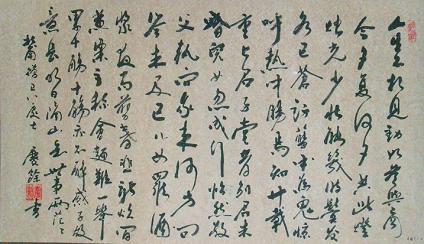 人生不相見動如參與商
今夕復何夕共此燈
燭光少壯能幾時鬢髮
各已蒼訪舊半為鬼驚
呼熱中腸焉知廿載
重上君子堂昔別君未
婚兒女忽成行怡然敬
父執問我來何方問
答未及已兒女羅酒
漿夜雨剪春韭新炊間
黃粱主稱會面難一舉
累十觴十觴亦不醉感子故
意長明日隔山岳世事兩茫茫
贈衛八處士 慶餘書